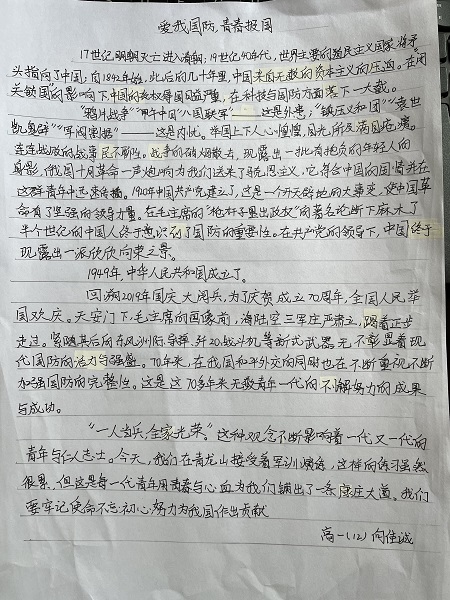 爱我国防,青春报国
17世纪明朝灭亡进入清朝;19世纪40年代,世界主要的殖民主义国家将矛
头指向了中国,自1842年始,此后的几十年里,中国来自无数的资本主义的压迫。在闭
关锁国的影响下,中国的丧权辱国日益严重,在科技与国防方面落下一大截。
"鸦片战争""甲午中日""八国联军"——这是外患;"镇压义和团""袁世
凯复辟""军阀割据"——这是内忧。举国上下人心惶惶,目光所及满目疮痍。
连连战败的战事民不聊生。战争的硝烟散去,现露出一批有抱负的年轻人的
身影,俄国十月革命一声炮响为我们送来了马克思主义,它符合中国的国情并在
这群青年中迅速传播。1940年中国共产党建立了,这是一个开天辟地的大事变,使中国革
命有了坚强的领导力量。在毛主席的"枪杆子里出政权"的著名论断下麻木了
半个世纪的中国人终于意识到了国防的重要性。在共产党的领导下,中国终于
现露出一派欣欣向荣之景。
1949年,中华人民共和国成立了。
回想2019年国庆大阅兵,为了庆贺成立70周年,全国人民举
国欢庆。天安门下,毛主席的画像前,海陆空三军庄严肃立,踏着正步
走过。紧随其后的东风洲际导弹、歼20战斗机等新式武器无不彰显着现
代国防的活力与强盛。70年来,在我国和平外交的同时也在不断重视不断
加强国防的完整性。这是这70多年来无数青年一代的不懈努力的成果
与成功。
"一人当兵,全家光荣。"这种观念不断影响着一代又一代的
青年与仁人志士。今天,我们在青龙山接受着军训演练,这样的练习虽然
很累,但这是每一代青年用青春与心血为我们铺出了一条康庄大道。我们
要牢记使命不忘初心努力为我国作出贡献
高一(12) 向佳诚